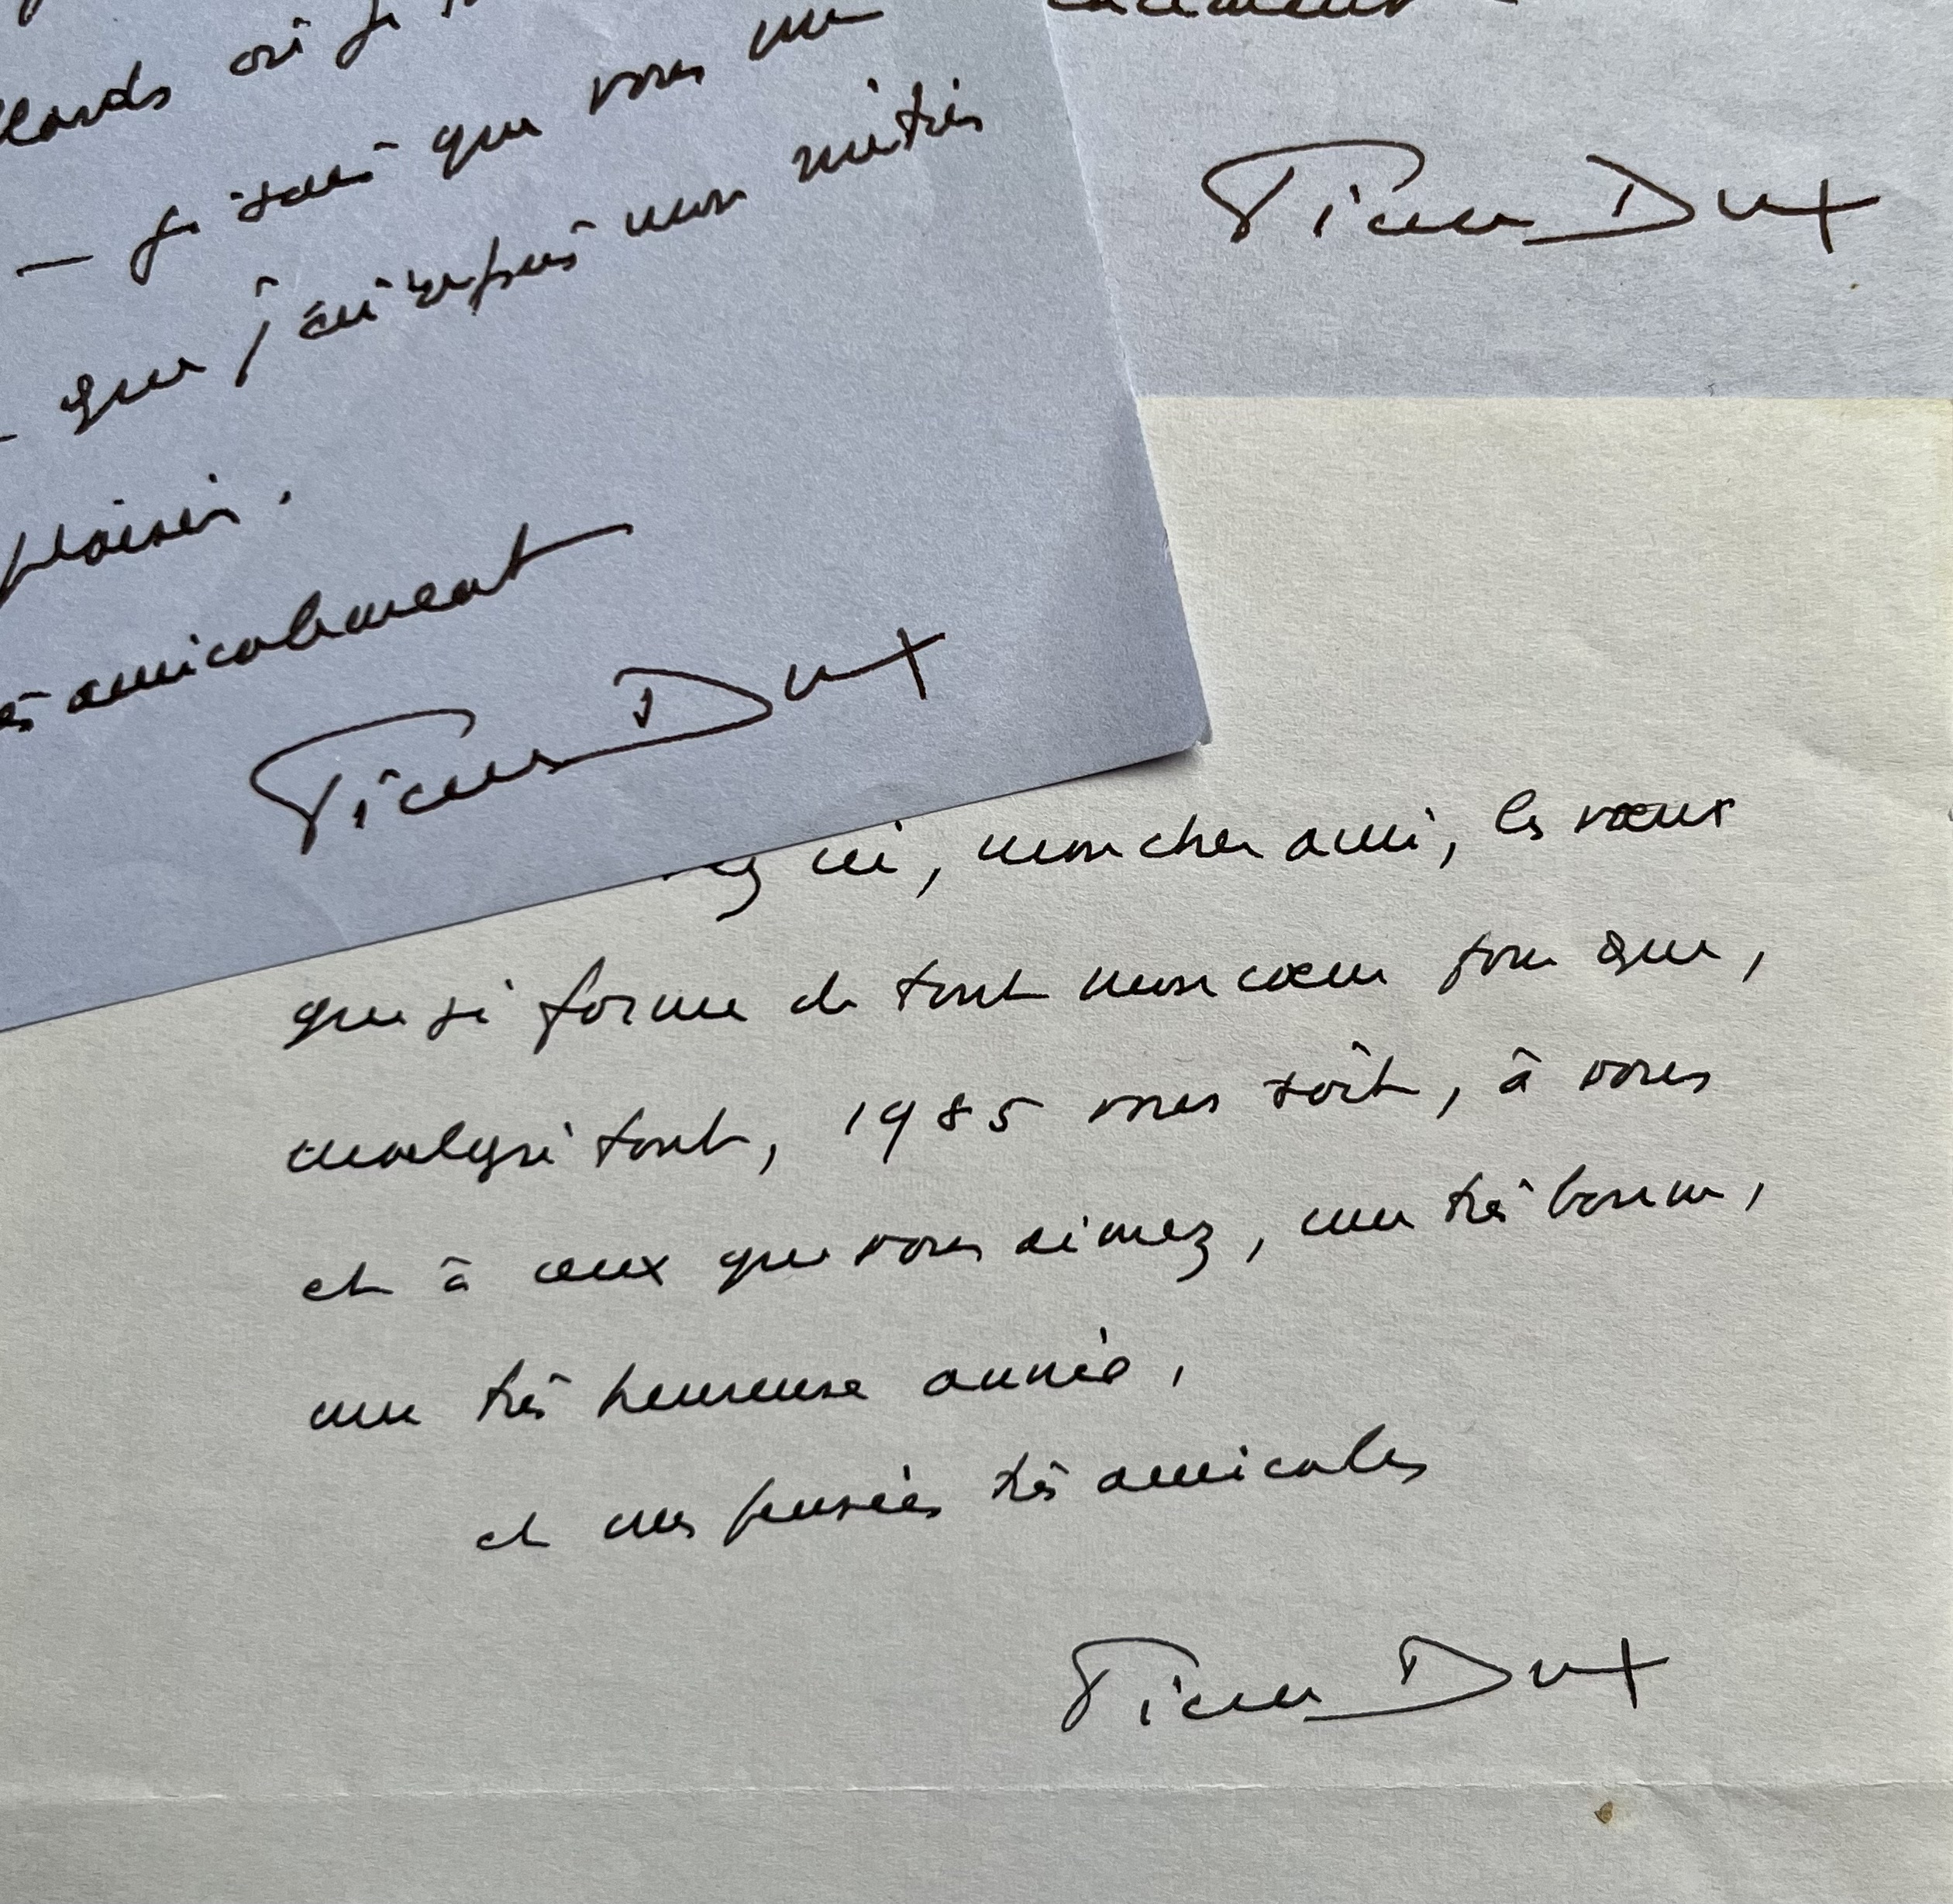 où je
— je sais que vous me
que j'ai repris mon métier
plaisir.
amicalement
Pierre Dux
Pierre Dux
ici, mon cher ami, les vœux
que je forme de tout mon cœur pour que,
malgré tout, 1985 vous soit, à vous
et à ceux que vous aimez, une très bonne,
une très heureuse année,
et mes pensées très amicales
Pierre Dux